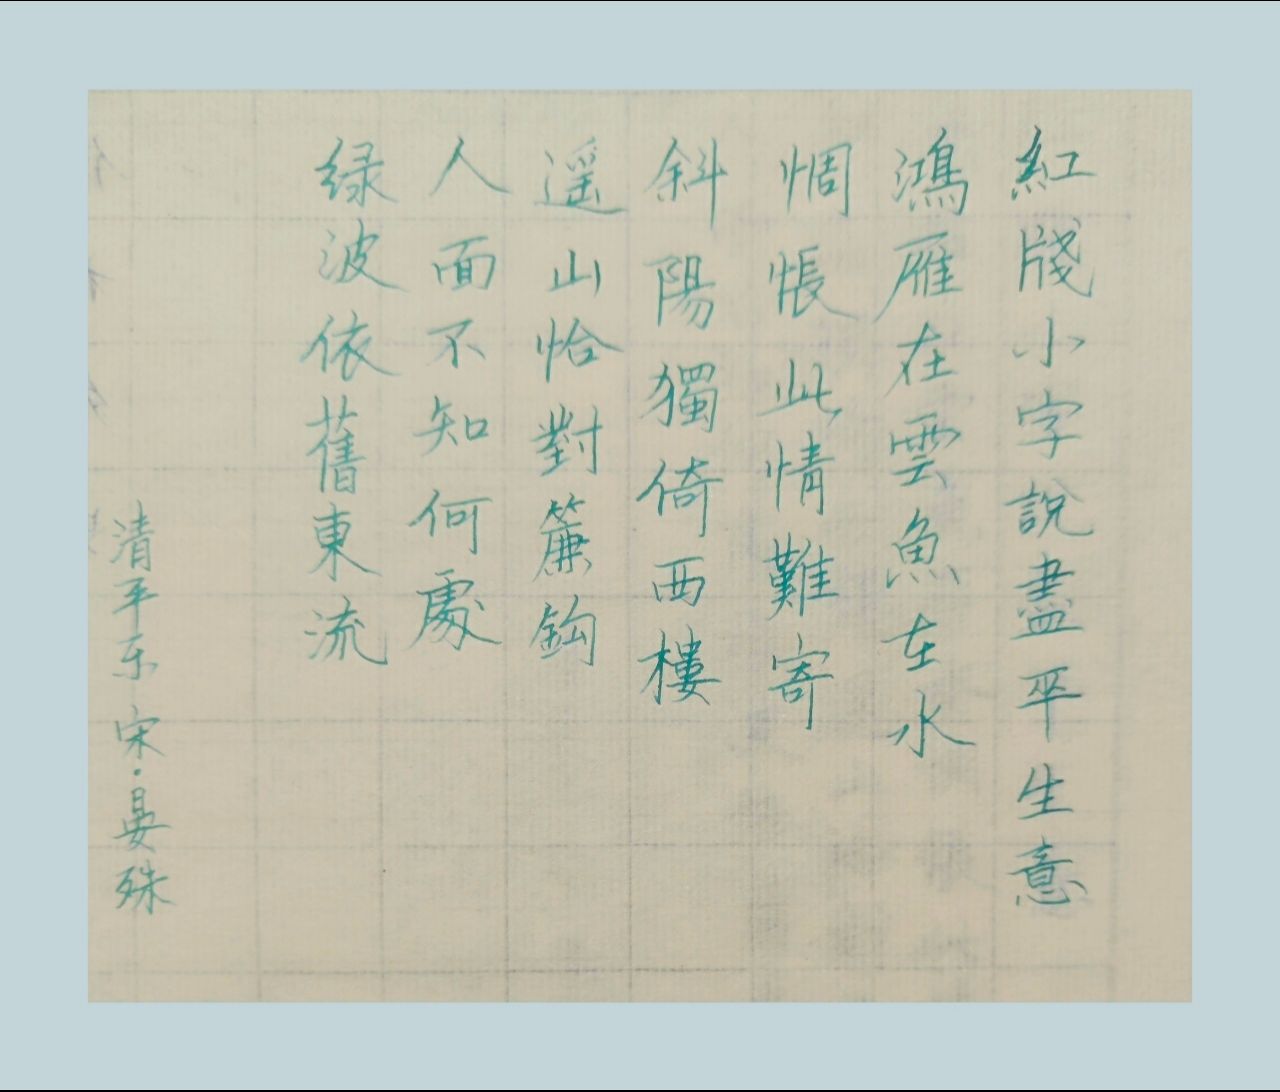 紅牋小字說盡平生意
鴻雁在雲魚在水
惆悵此情難寄
斜陽獨倚西樓
遥山恰對簾鈎
人面不知何處
緑波依舊東流
清平乐 宋·晏殊